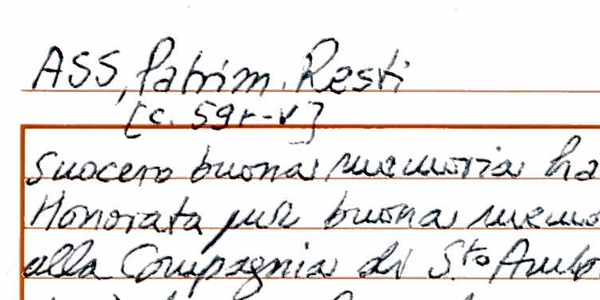 ASS, Patrim. Resti
[c. 59r-v]
Suocero buona memoria ha
Honorata pur buona memo
alla Compagnia di S.to Ambo